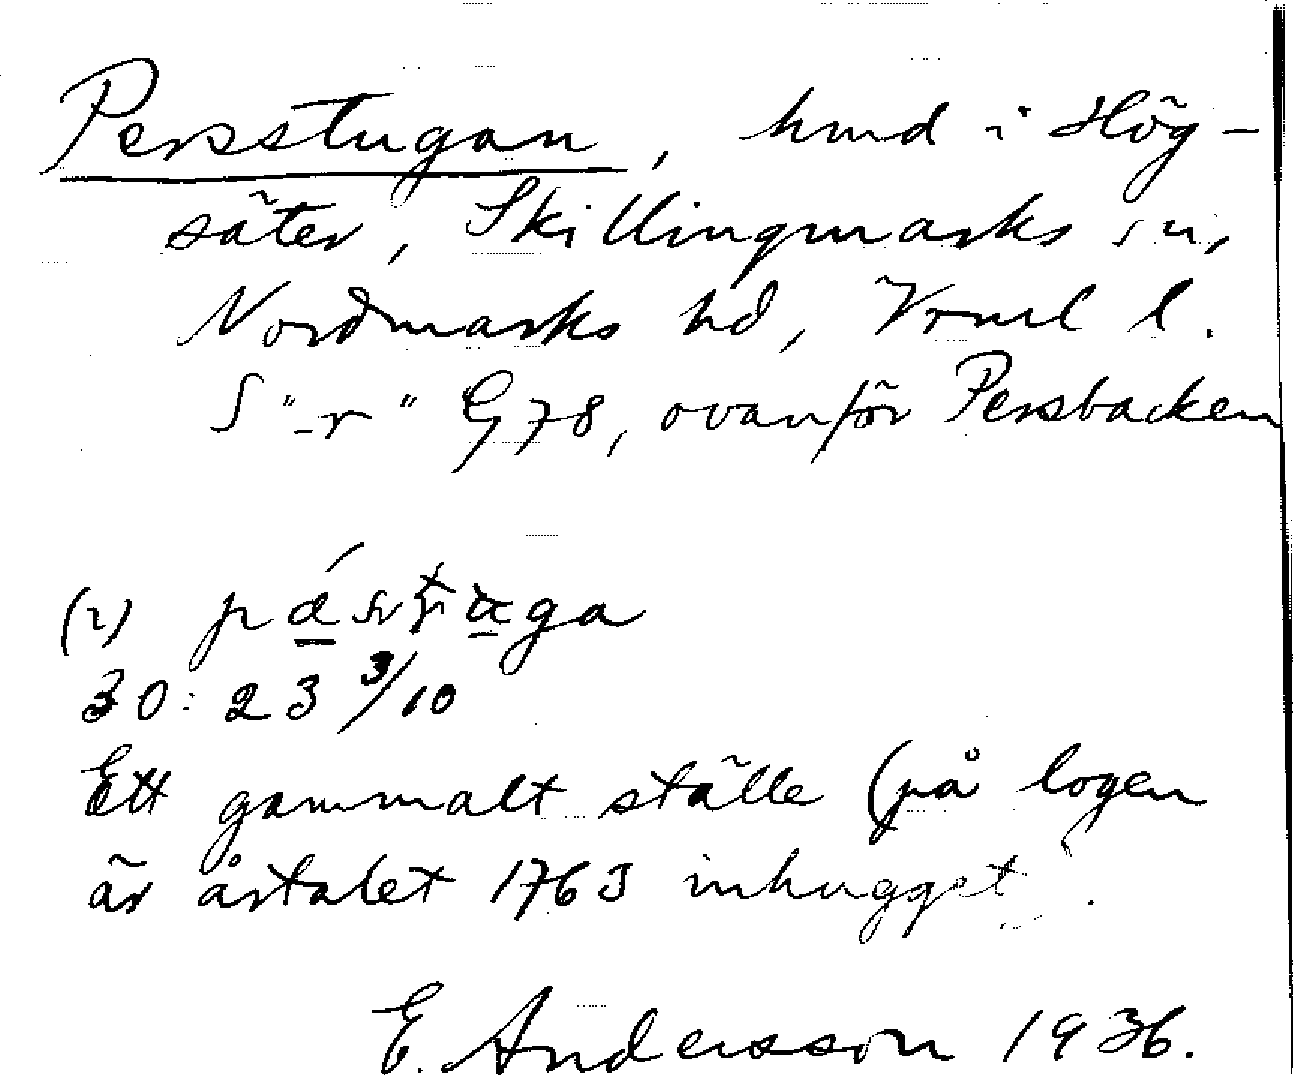 Persstugan, hmd i Hög-
säter, Skillingmarks sn,
Nordmarks hd, Vrml l.
S "-r" G 78, ovanför Persbacken
(1)
30: 23 3/10
Ett gammalt ställe (på logen
är årtalet 1763 inhugget).
E. Andersson 1936.